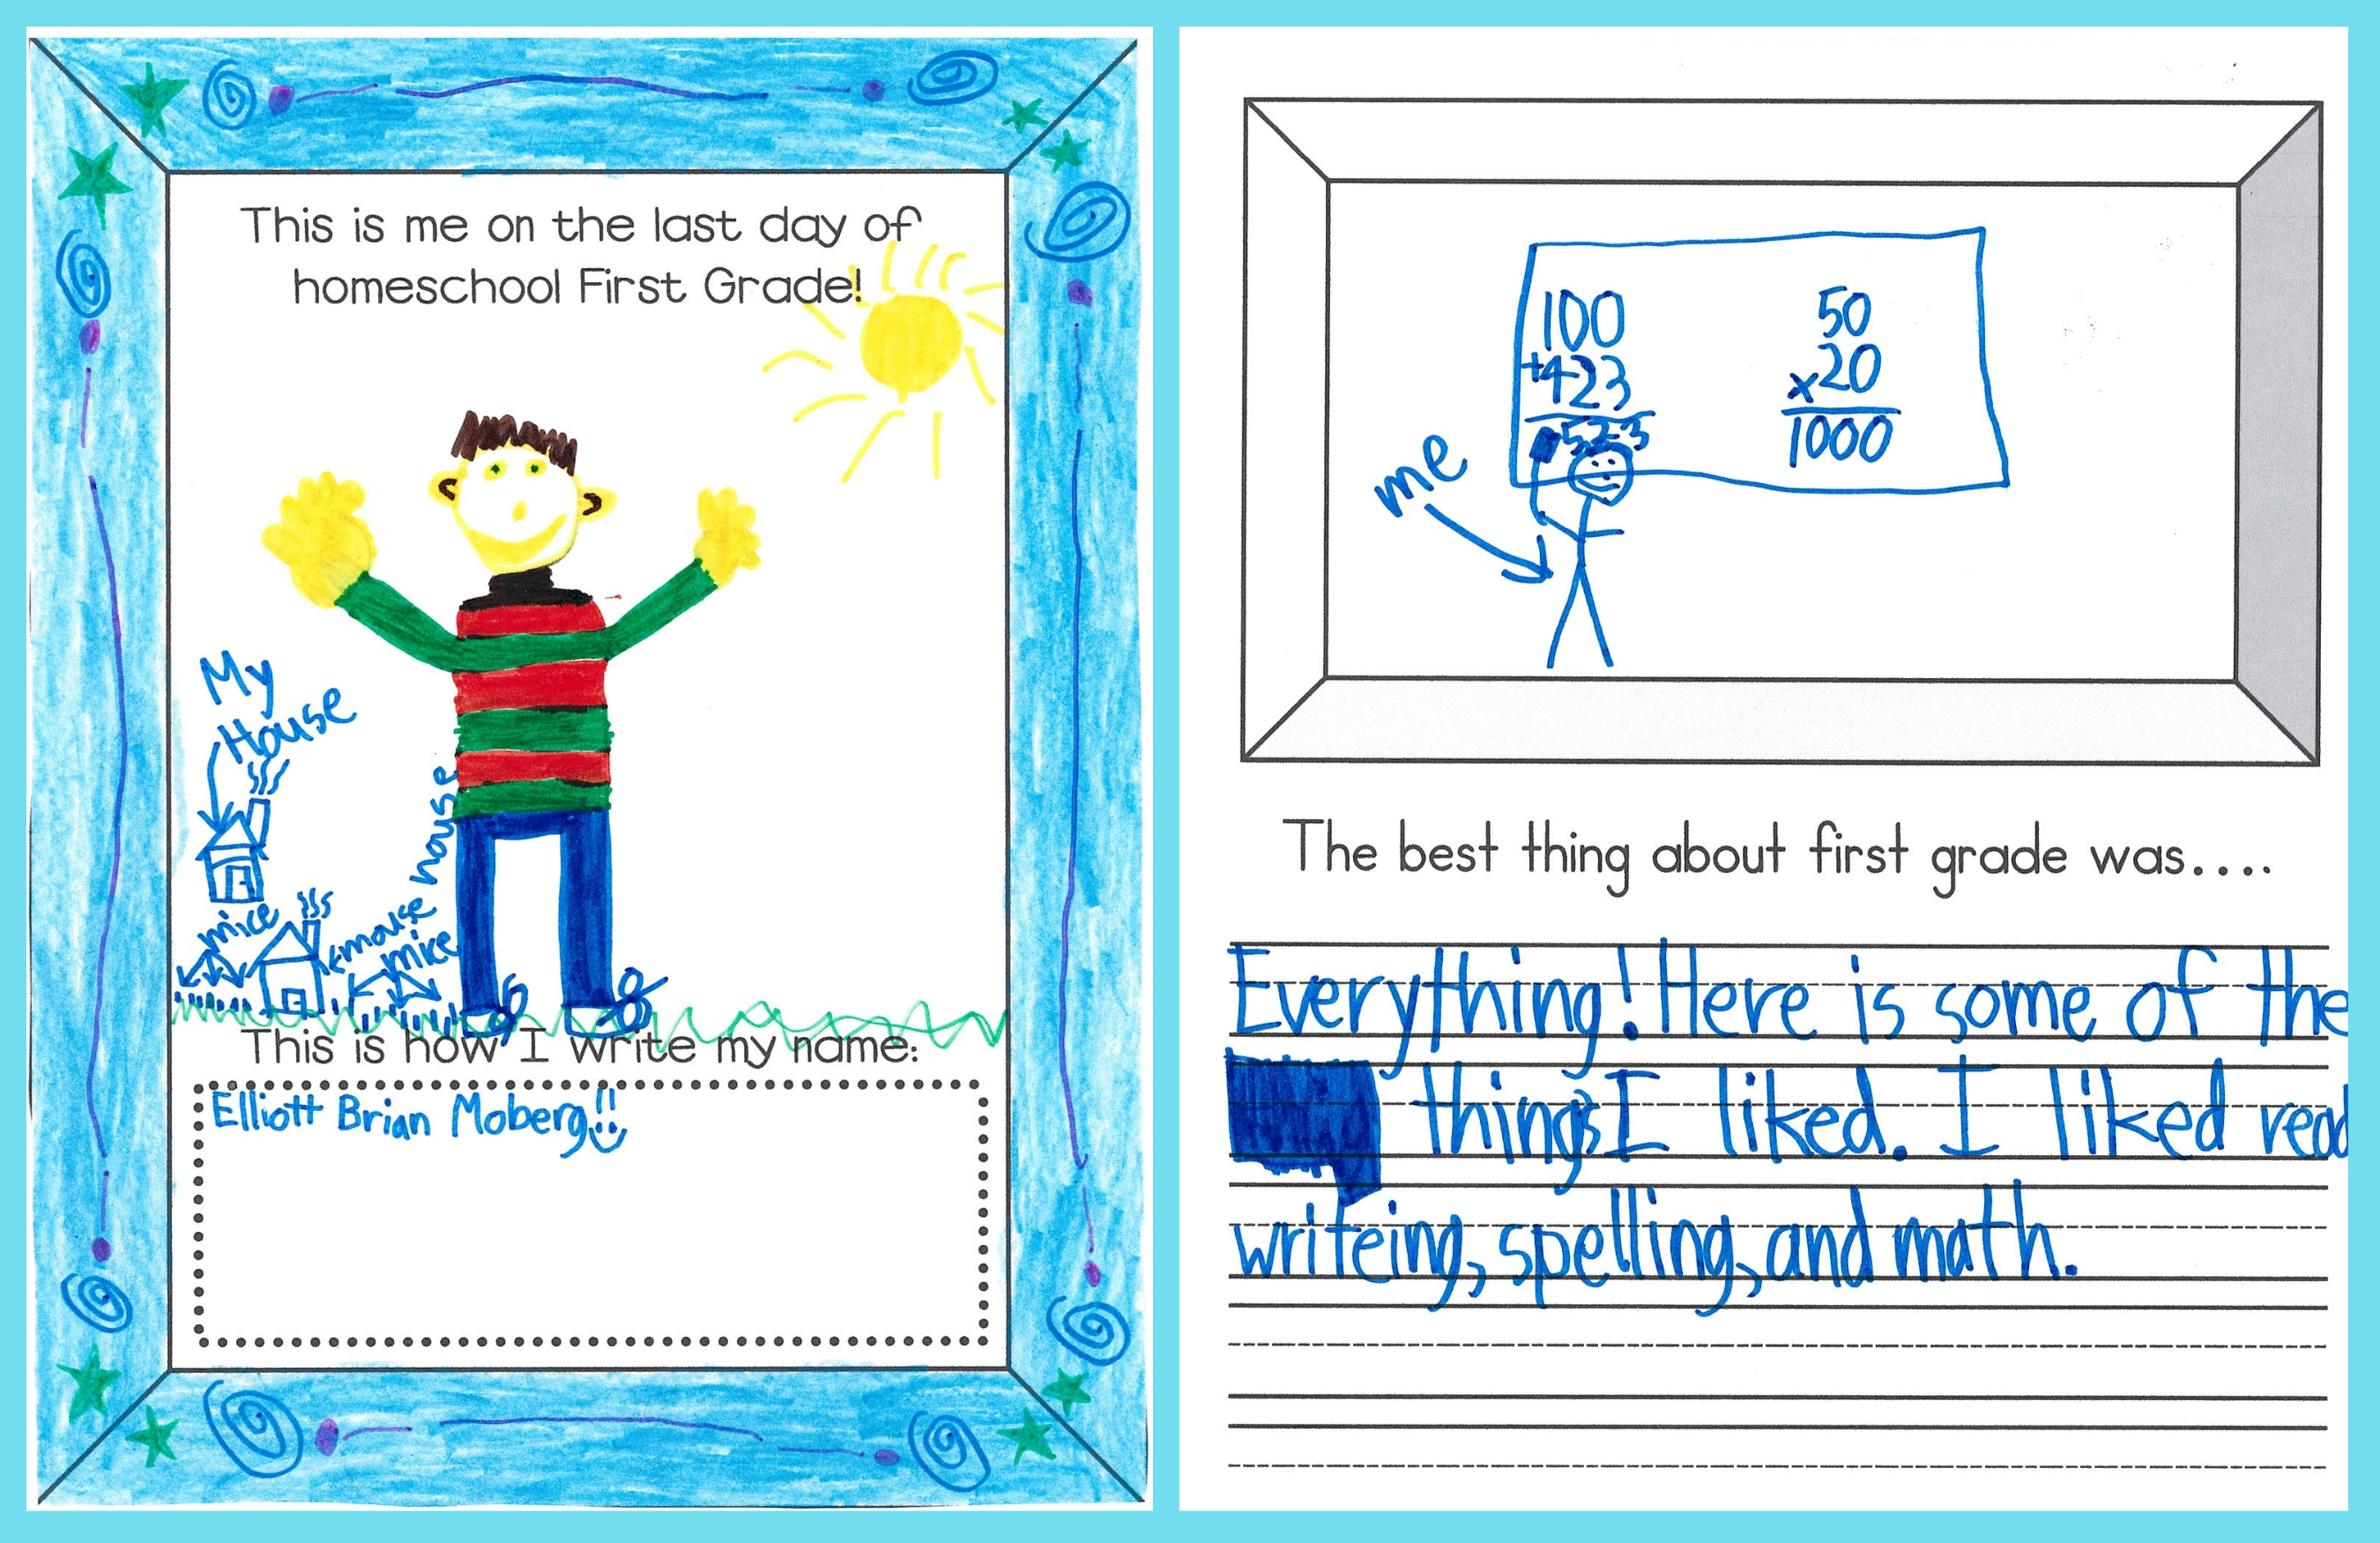 This is me on the last day of
homeschool First Grade!
My
House
mice
mouse
house
mice
This is how I write my name:
Elliott Brian Moberg!!
100
+423
523
50
x20
1000
me
The best thing about first grade was....
Everything! Here is some of the
things I liked. I liked read
writeing, spelling, and math.